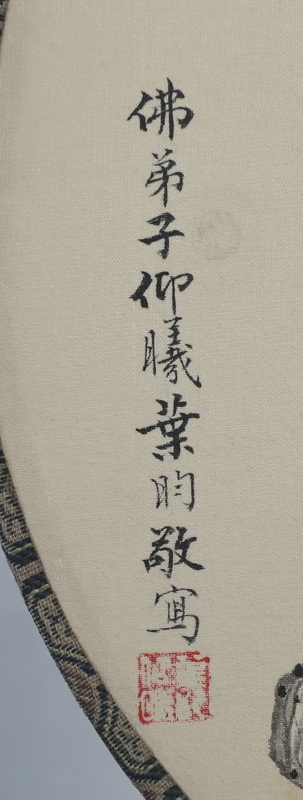 佛弟子仰曦葉昀敬寫